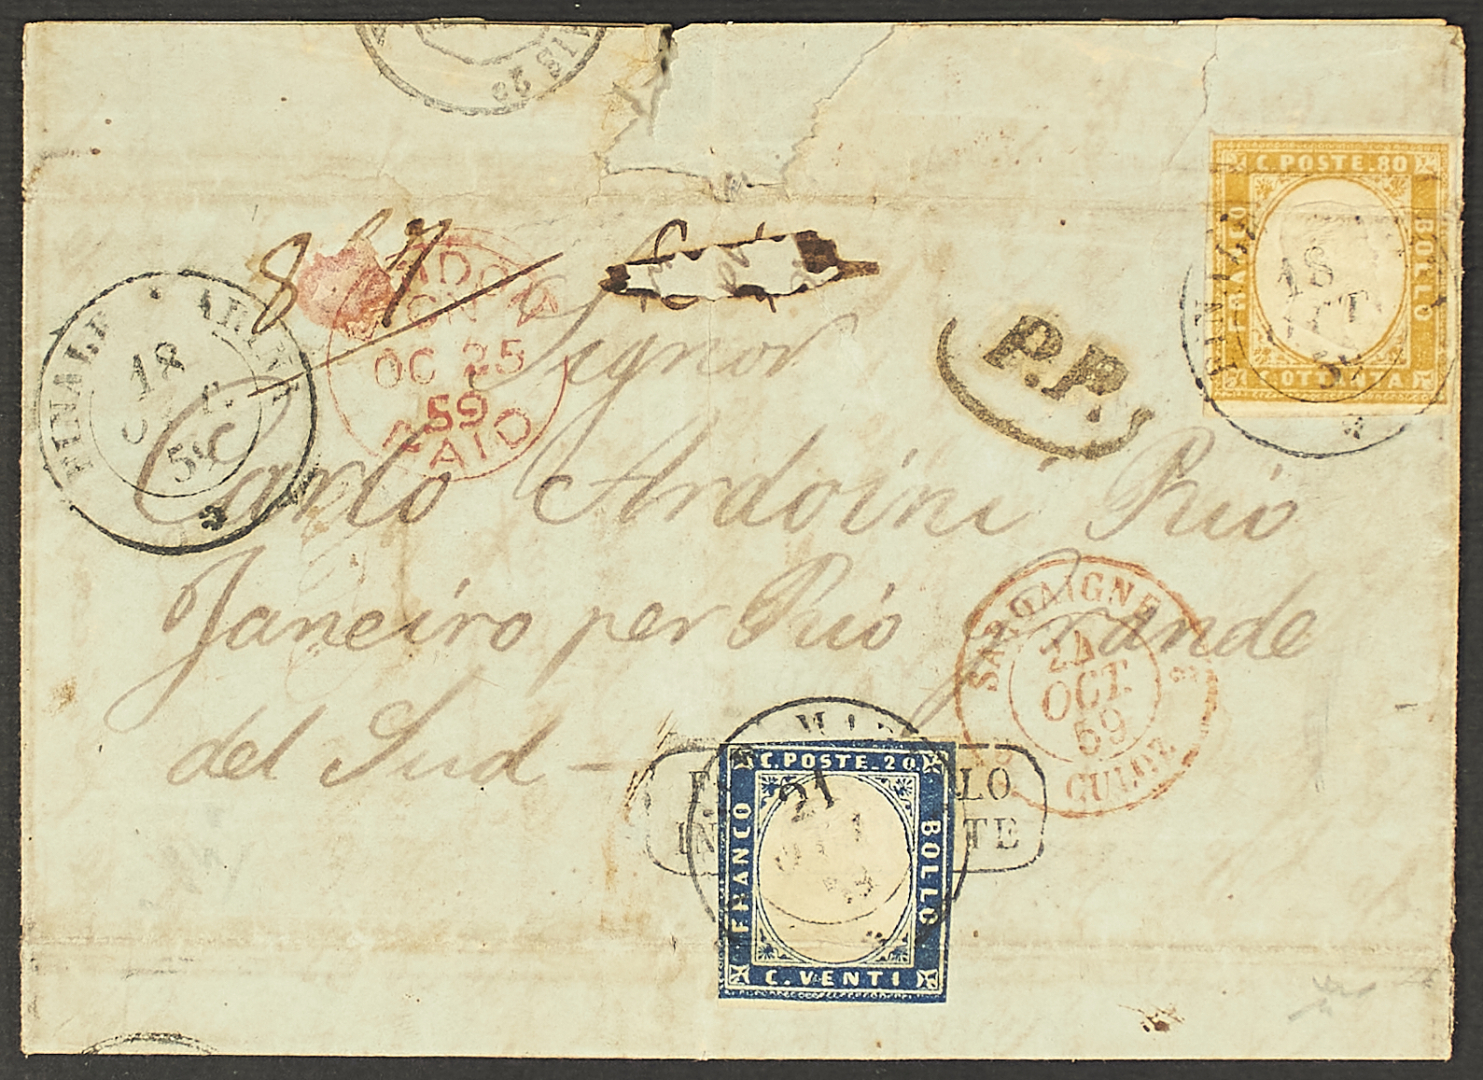 IS 25
C. POSTE. 80
FRANCO
BOLLO
C. OTTANTA
18
OCT
59
87
FINALE
18
OC 25
59
PAID
P.P.
Signor
Carlo Ardoini Rio
Janeiro per Rio Grande
del Sud -
SARDAIGNE
24
OCT.
59
CULOZ
C. POSTE. 20
FRANCO
BOLLO
C. VENTI
21
LO
IN TE